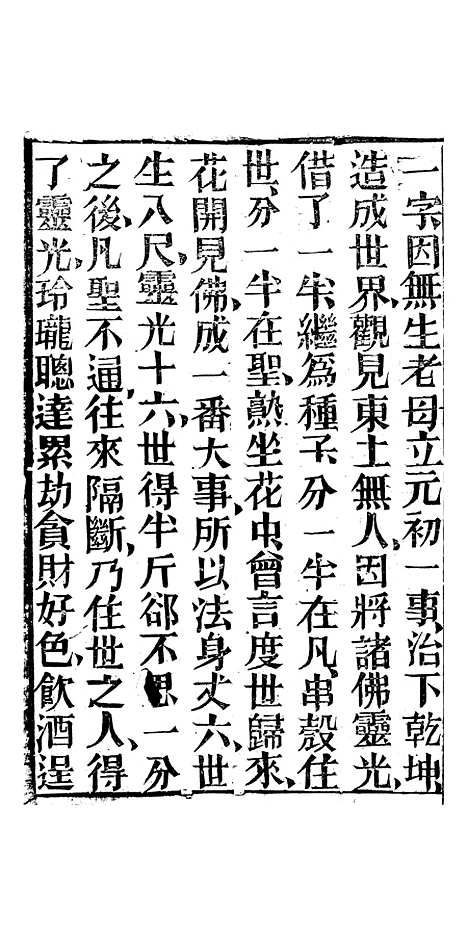 一字、因無生老母立元初一事、治下乾坤、
造成世界、觀見東土無人、因將諸佛靈光、
借了一半、繼爲種子、分一半在凡、串殼住
世、分一半在聖、熱坐花中、曾言度世歸來、
花開見佛、成一番大事、所以法身丈六、世
生八尺、靈光十六、世得半斤、郤不思一分
之後、凡聖不通、往來隔斷、乃住世之人、得
了靈光、玲瓏聰達、累劫貪財好色、飲酒逞